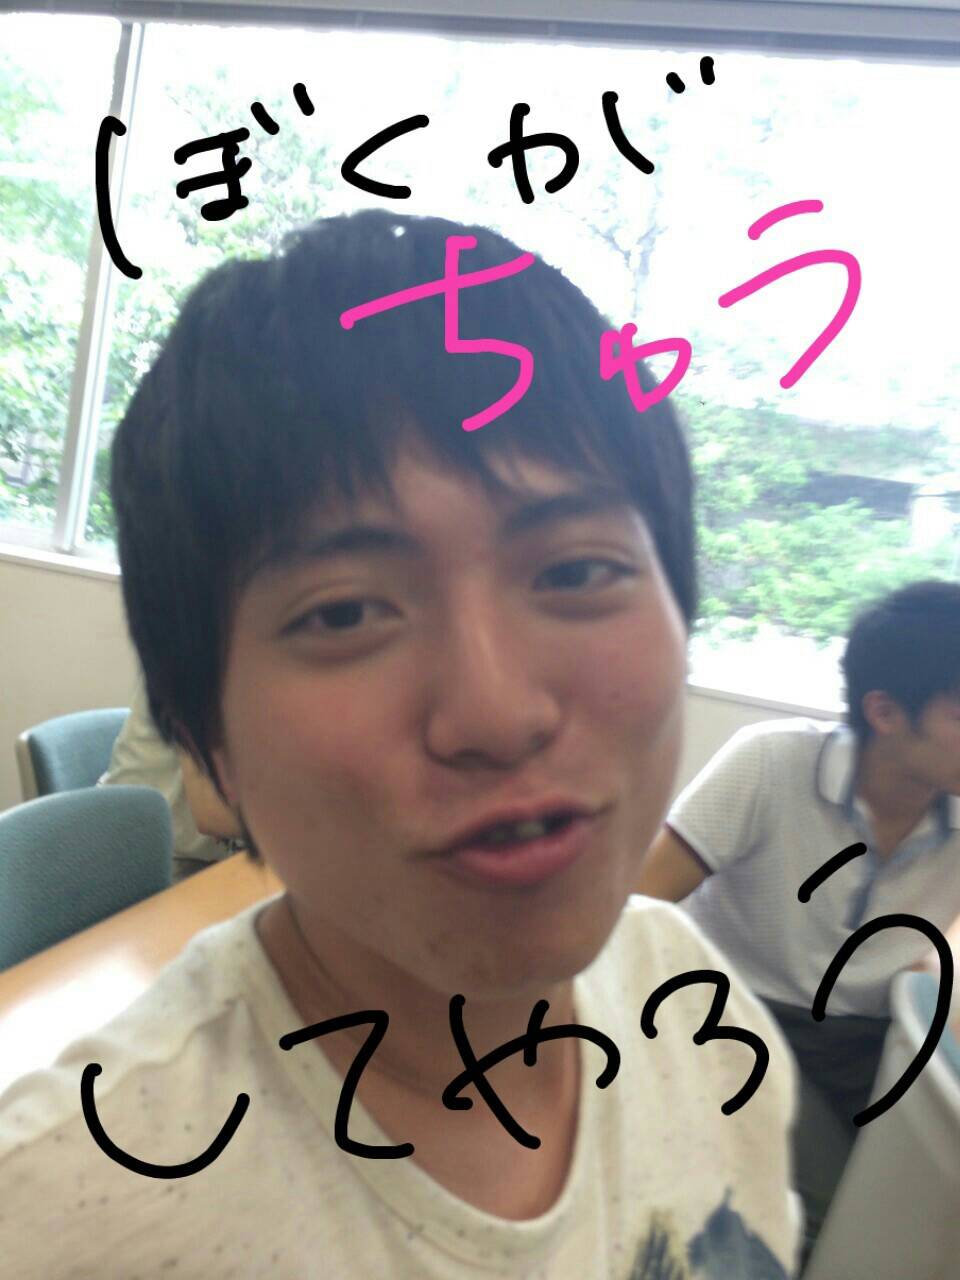 ぼくが
ちゅう
してやろう